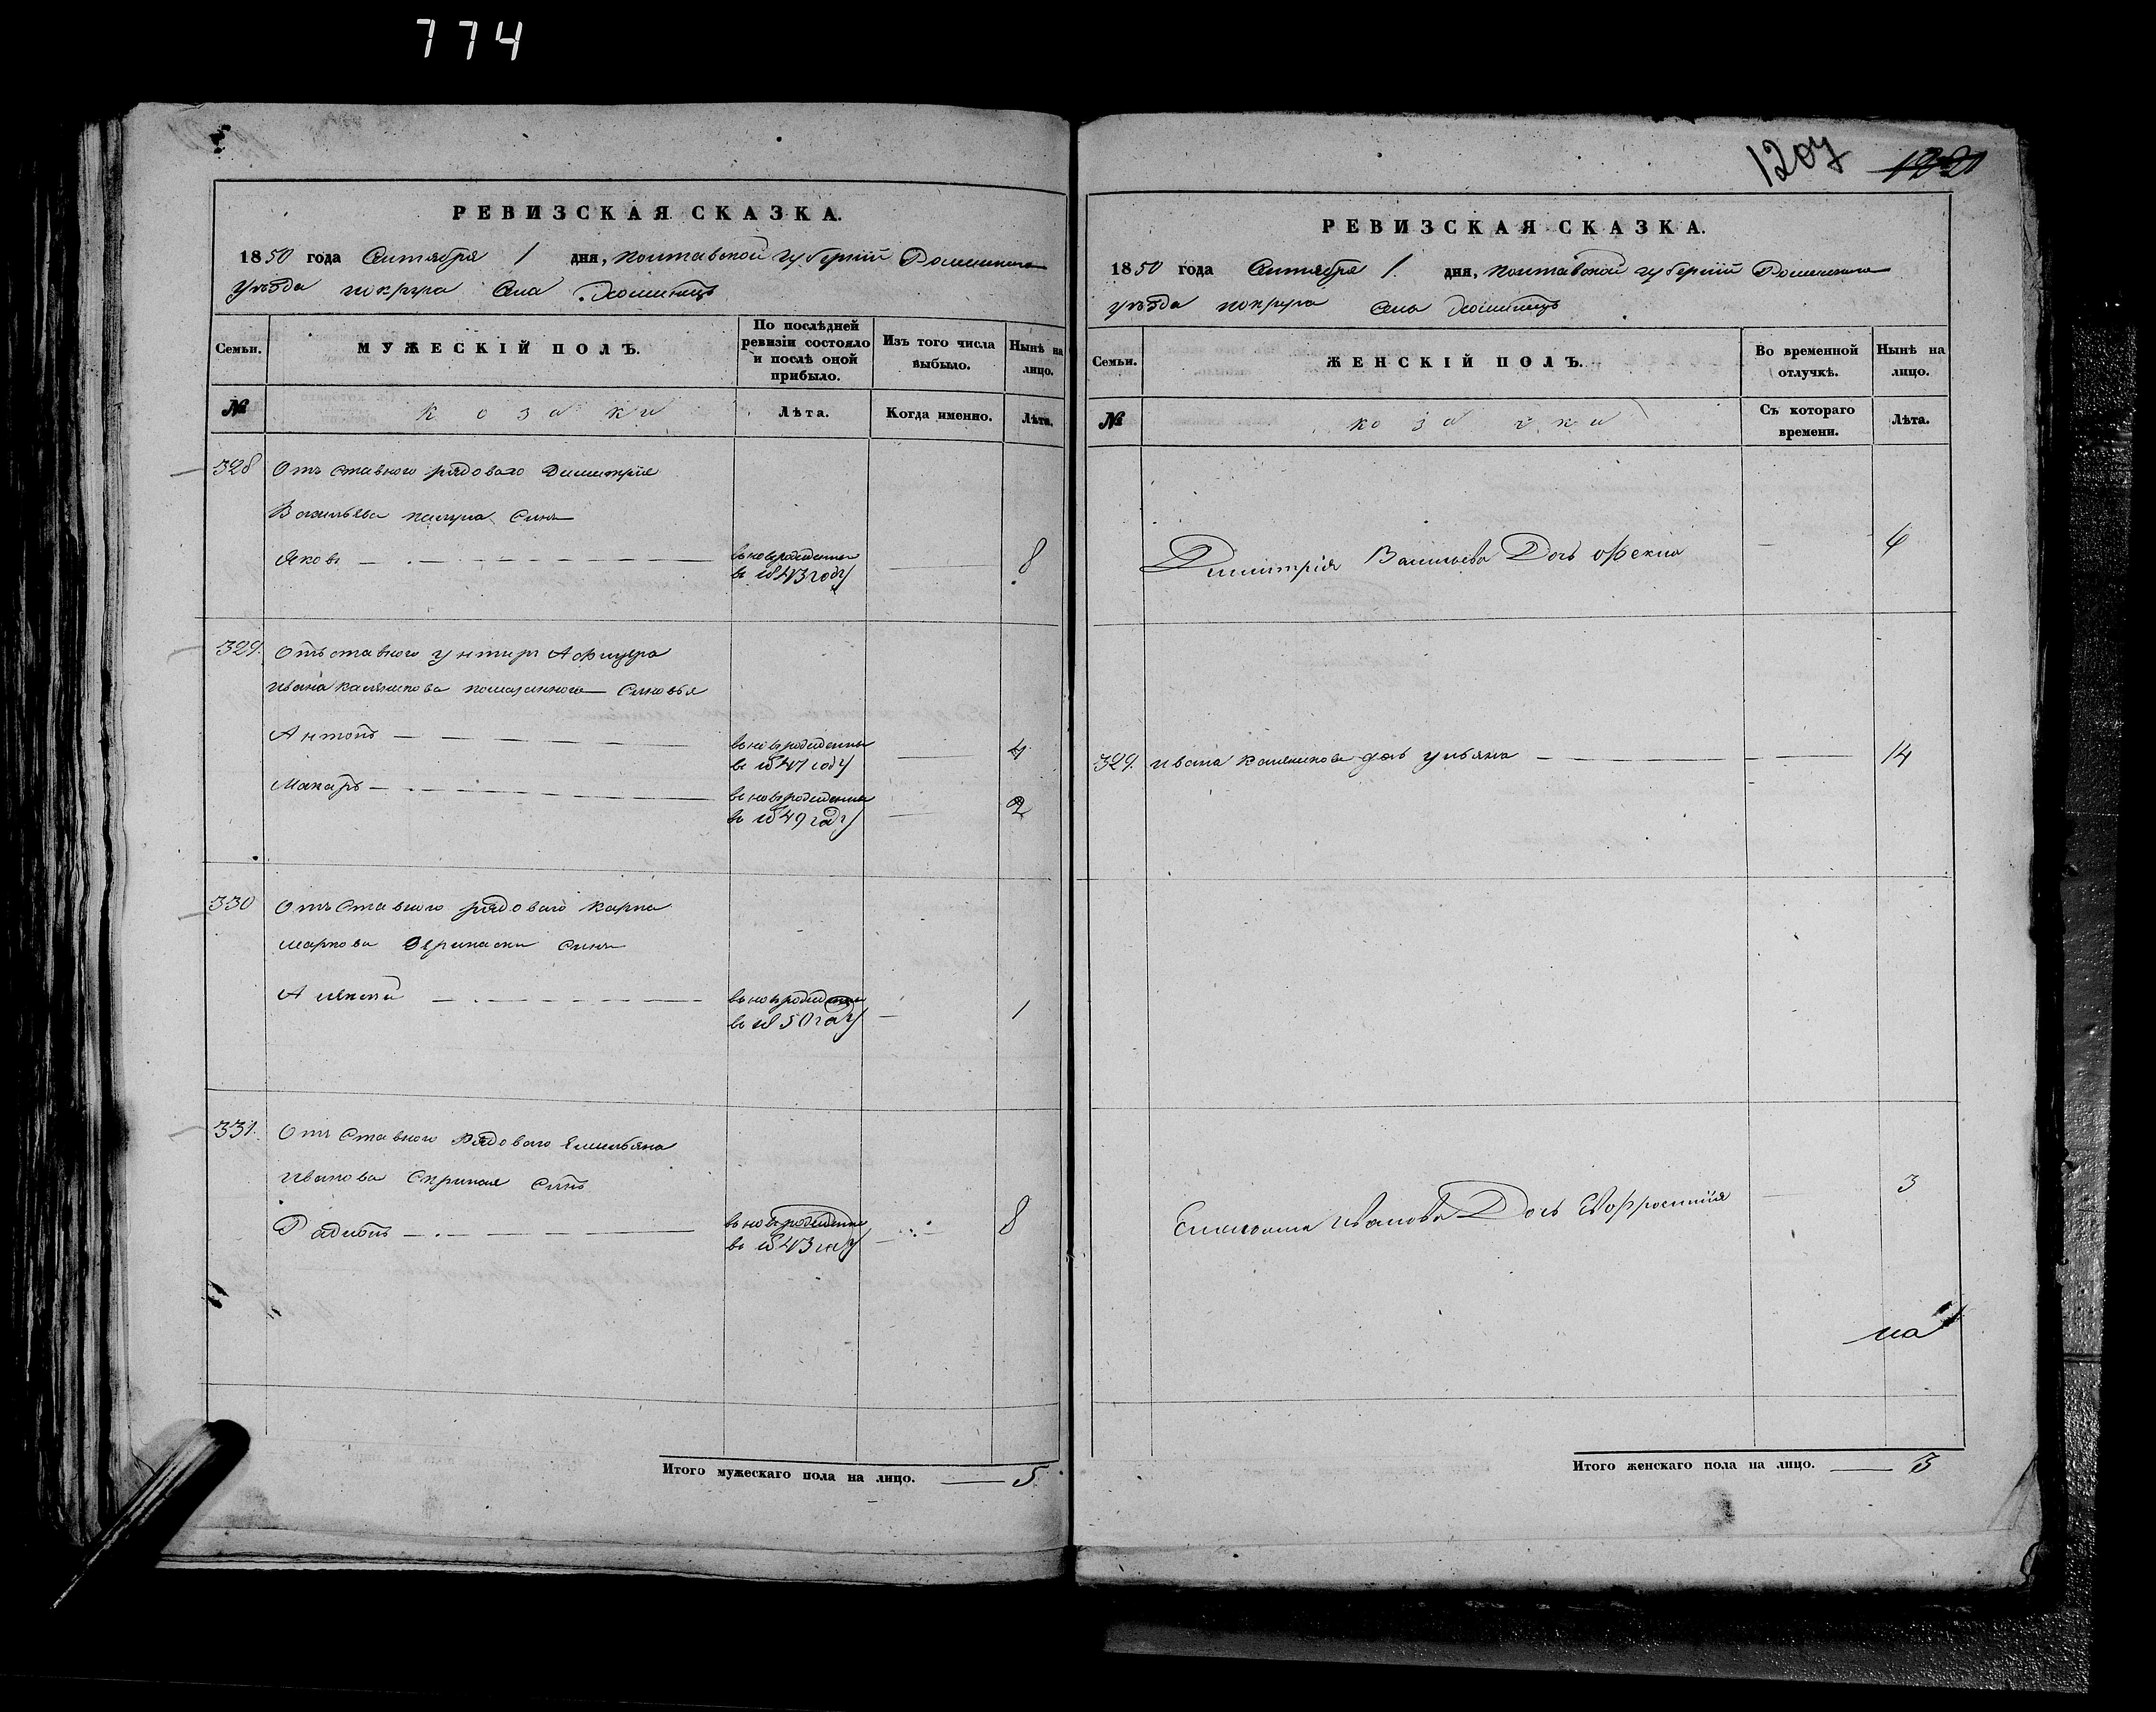 774
РЕВИЗСКАЯ СКАЗКА.
1850 года Сентября 1 дня, Полтавской губернии Роменскаго
уезда округа Села
Семьи.
МУЖЕСКІЙ ПОЛЪ.
По послѣдней ревизіи состояло и послѣ оной прибыло.
Изъ того числа выбыло.
Нынѣ на лицо.
№
козаки
Лѣта.
Когда именно.
Лѣта.
328
Отъ ставного рядоваго Димитрія
Васильева Сынъ
Яковъ
въновърожденны
въ 1843 году
8
329.
Отъставного унтеръ Афицера
Ивана Сыновья
Антонъ
въновърожденны
въ 1847 году
4
Макаръ
въновърожденны
въ 1849 году
2
330
Отъ Ставного рядоваго Карпа
Маркова Сынъ
Алексей
въновърожденны
въ 1850 году
1
331.
Отъ Ставного Рядоваго Емельяна
Иванова Скрипая Сынъ
Радионъ
въновърожденны
въ 1843 году
8
Итого мужескаго пола на лицо. 5
1207 1220
РЕВИЗСКАЯ СКАЗКА.
1850 года Сентября 1. дня, Полтавской губерніи Роменскаго
уезда округа Села
Семьи.
ЖЕНСКІЙ ПОЛЪ.
Во временной отлучкѣ.
Нынѣ на лицо.
№
козачки
Съ котораго времени.
Лѣта.
Димитрія Васильева Дочь Фекла
6
329. Ивана дочь Ульяна
14
Емельяна Иванова Дочь Евфросинія
3
Итого женскаго пола на лицо. 3